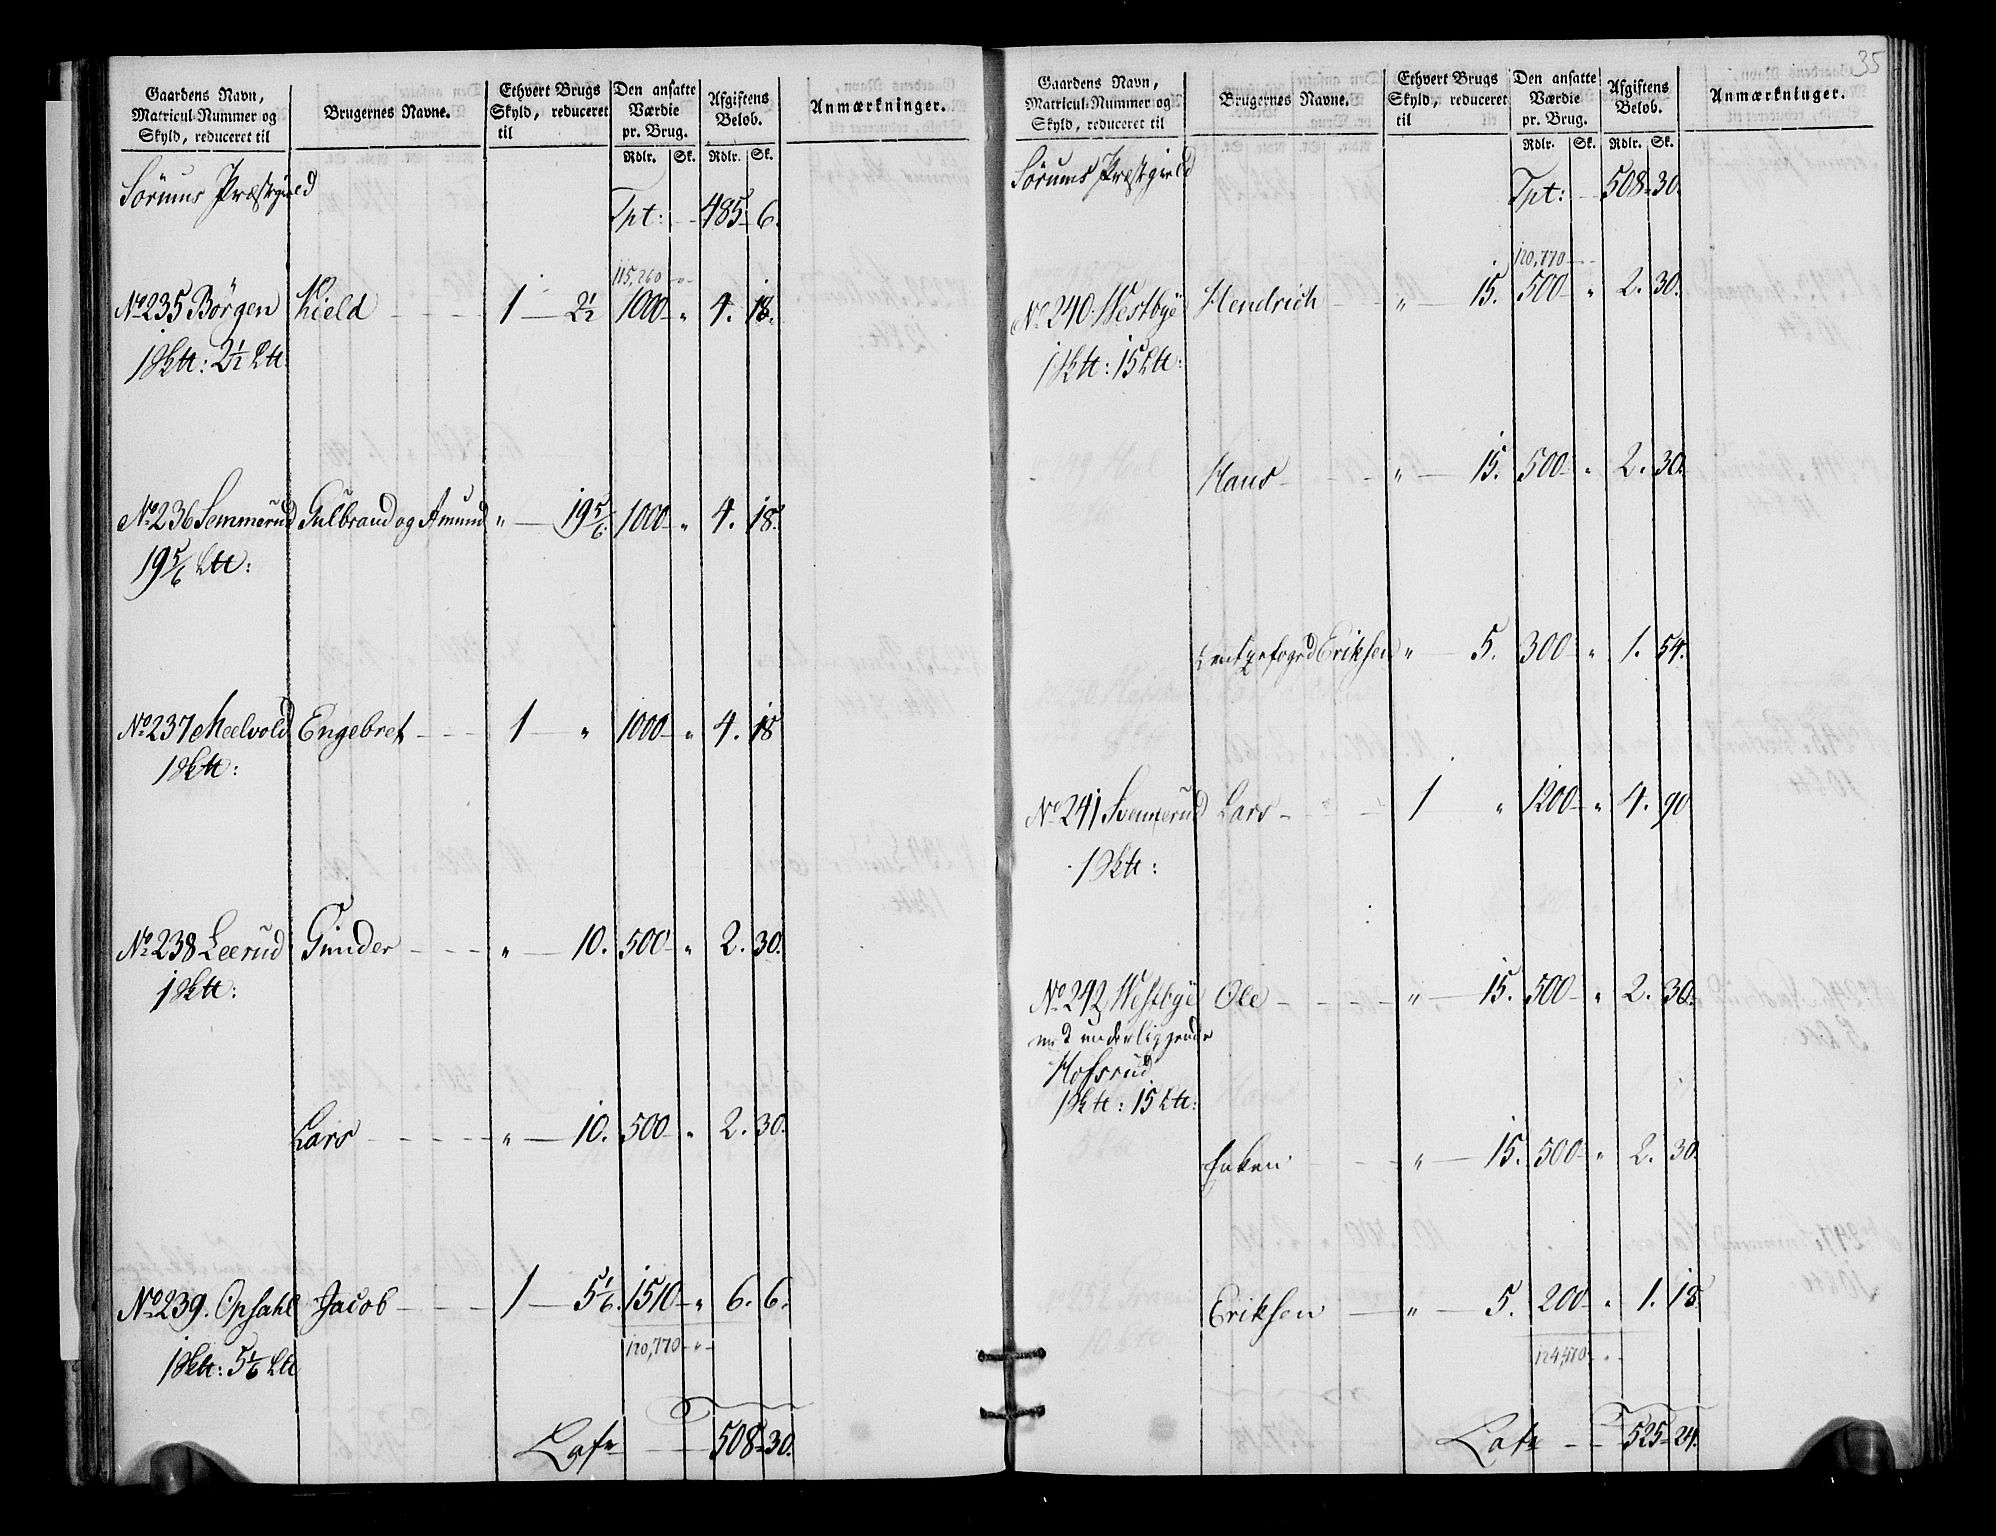 Gaardens Navn,
Matricul-Nummer og
Skyld, reduceret til
Brugernes Navne.
Ethvert Brugs
Skyld, reduceret
til
Den ansatte
Værdie
pr. Brug.
Afgiftens
Beløb.
Anmærkninger.
Rdlr. Sk. Rdlr. Sk.
Sörums Præstgield
Tpt: 485 6.
115,260 "
No 235 Börgen Kield 1 2½ 1000 " 4. 18.
1 Sktt: 2½ Ltt:
No 236 Semmerud Gulbrand og Amund " 19 5/6 1000 " 4. 18.
19 5/6 Ltt:
No 237 Meelvold Engebret 1 " 1000 " 4. 18
1 Sktt:
No 238 Leerud Gunder " 10. 500 " 2. 30.
1 Sktt:
Lars " 10. 500 " 2. 30.
No 239. Opsahl Jacob 1 5 1/6. 1510 " 6. 6.
120,770 "
1 Sktt: 5 1/6 Ltt
Lats 508 30.
35
Gaardens Navn,
Matricul-Nummer og
Skyld, reduceret til
Brugernes Navne.
Ethvert Brugs
Skyld, reduceret
til
Den ansatte
Værdie
pr. Brug.
Afgiftens
Beløb.
Anmærkninger.
Rdlr. Sk. Rdlr. Sk.
Sörums Præstgield
Tpt: 508 30.
120,770
No 240. Westbye Hendrich " 15. 500 " 2. 30.
1 Sktt: 15 Ltt:
Hans " 15. 500 " 2. 30.
Eriksen " 5. 300 " 1. 54.
No 241 Svennerud Lars 1 " 1200 " 4. 90
1 Sktt:
No 242 Westbye Ole " 15. 500 " 2. 30.
med underliggende
Hofsrud
1 Sktt: 15 Ltt:
Enken " 15. 500 " 2. 30.
Eriksen " 5. 200 " 1. 18.
124,470
Lats 525 24.